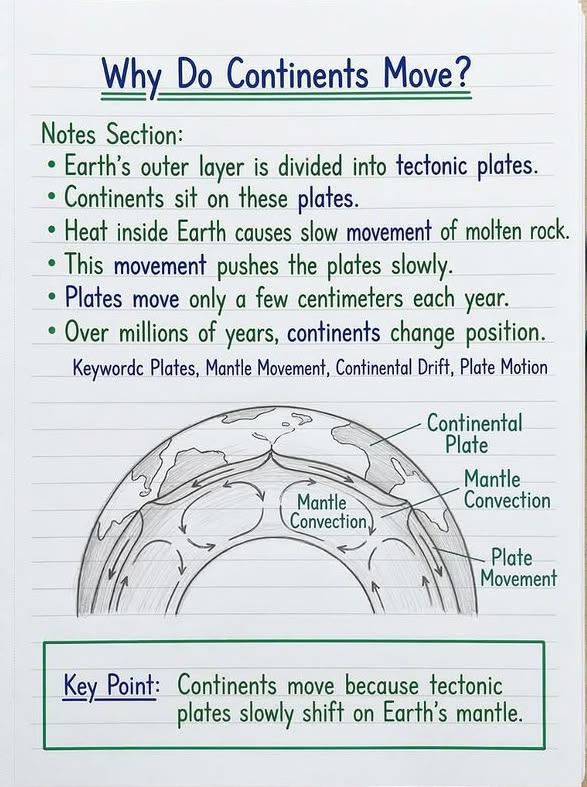 Why Do Continents Move?
Notes Section:
• Earth's outer layer is divided into tectonic plates.
• Continents sit on these plates.
• Heat inside Earth causes slow movement of molten rock.
• This movement pushes the plates slowly.
• Plates move only a few centimeters each year.
• Over millions of years, continents change position.
Keywordc Plates, Mantle Movement, Continental Drift, Plate Motion
Continental
Plate
Mantle
Convection
Mantle
Convection
Plate
Movement
Key Point: Continents move because tectonic
plates slowly shift on Earth's mantle.